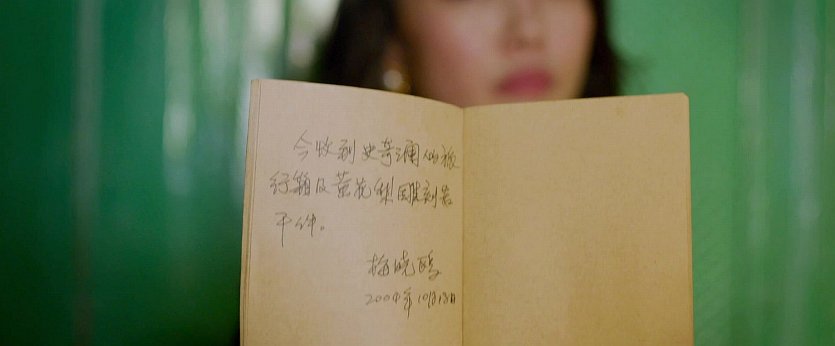 今收到史奇澜的旅
行箱及黄花梨雕刻若
干件。
梅晓鸥
2004年10月18日